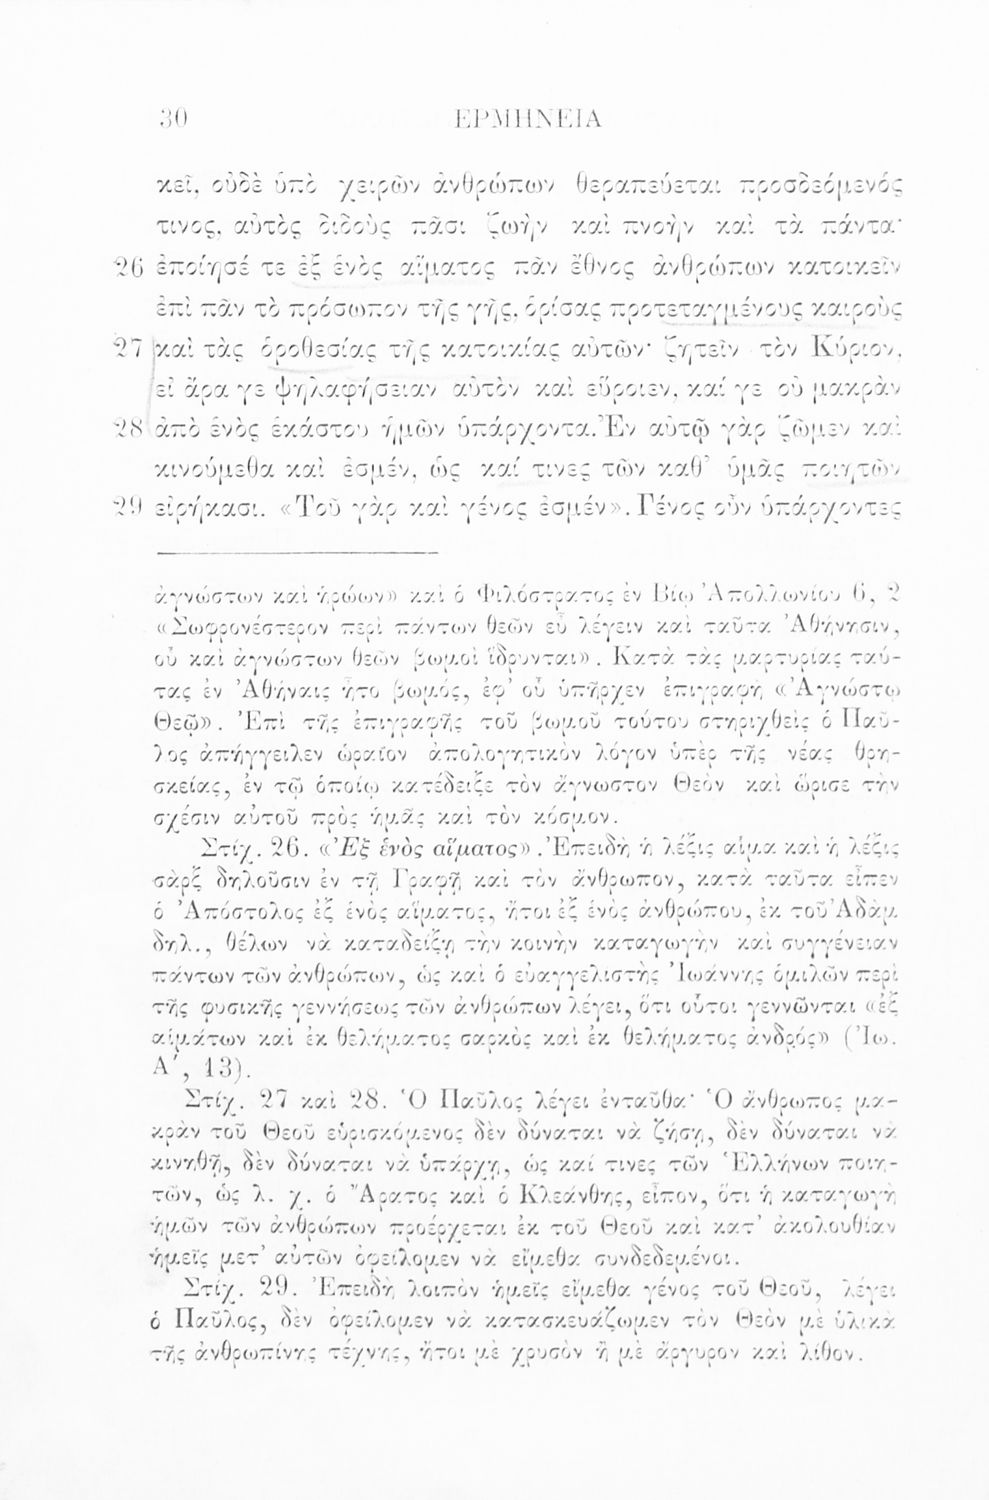 30 ΕΡΜΗΝΕΙΑ
κεῖ, οὐδὲ ὑπὸ χειρῶν ἀνθρώπων θεραπεύεται προσδεόμενός
τινος, αὐτὸς διδοὺς πᾶσι ζωὴν καὶ πνοὴν καὶ τὰ πάντα·
26 ἐποίησέ τε ἐξ ἑνὸς αἵματος πᾶν ἔθνος ἀνθρώπων κατοικεῖν
ἐπὶ πᾶν τὸ πρόσωπον τῆς γῆς, ὁρίσας προτεταγμένους καιροὺς
27 καὶ τὰς ὁροθεσίας τῆς κατοικίας αὐτῶν· ζητεῖν τὸν Κύριον,
εἰ ἄρα γε ψηλαφήσειαν αὐτὸν καὶ εὕροιεν, καί γε οὐ μακρὰν
28 ἀπὸ ἑνὸς ἑκάστου ἡμῶν ὑπάρχοντα. Ἐν αὐτῷ γὰρ ζῶμεν καὶ
κινούμεθα καὶ ἐσμέν, ὡς καί τινες τῶν καθ’ ὑμᾶς ποιητῶν
29 εἰρήκασι. «Τοῦ γὰρ καὶ γένος ἐσμέν». Γένος οὖν ὑπάρχοντες
ἀγνώστων καὶ ἡρώων» καὶ ὁ Φιλόστρατος ἐν Βίῳ Ἀπολλωνίου 6, 2
«Σωφρονέστερον περὶ πάντων θεῶν εὖ λέγειν καὶ ταῦτα Ἀθήνησιν,
οὗ καὶ ἀγνώστων θεῶν βωμοὶ ἵδρυνται». Κατὰ τὰς μαρτυρίας ταύ-
τας ἐν Ἀθήναις ἦτο βωμός, ἐφ’ οὗ ὑπῆρχεν ἐπιγραφὴ «Ἀγνώστῳ
Θεῷ». Ἐπὶ τῆς ἐπιγραφῆς τοῦ βωμοῦ τούτου στηριχθεὶς ὁ Παῦ-
λος ἀπήγγειλεν ὡραῖον ἀπολογητικὸν λόγον ὑπὲρ τῆς νέας θρη-
σκείας, ἐν τῷ ὁποίῳ κατέδειξε τὸν ἄγνωστον Θεὸν καὶ ὥρισε τὴν
σχέσιν αὐτοῦ πρὸς ἡμᾶς καὶ τὸν κόσμον.
Στίχ. 26. «Ἐξ ἑνὸς αἵματος». Ἐπειδὴ ἡ λέξις αἷμα καὶ ἡ λέξις
σὰρξ δηλοῦσιν ἐν τῇ Γραφῇ καὶ τὸν ἄνθρωπον, κατὰ ταῦτα εἶπεν
ὁ Ἀπόστολος ἐξ ἑνὸς αἵματος, ἤτοι ἐξ ἑνὸς ἀνθρώπου, ἐκ τοῦ Ἀδὰμ
δηλ., θέλων νὰ καταδείξῃ τὴν κοινὴν καταγωγὴν καὶ συγγένειαν
πάντων τῶν ἀνθρώπων, ὡς καὶ ὁ εὐαγγελιστὴς Ἰωάννης ὁμιλῶν περὶ
τῆς φυσικῆς γεννήσεως τῶν ἀνθρώπων λέγει, ὅτι οὗτοι γεννῶνται «ἐξ
αἱμάτων καὶ ἐκ θελήματος σαρκὸς καὶ ἐκ θελήματος ἀνδρός» (Ἰω.
Α΄, 13).
Στίχ. 27 καὶ 28. Ὁ Παῦλος λέγει ἐνταῦθα· Ὁ ἄνθρωπος μα-
κρὰν τοῦ Θεοῦ εὑρισκόμενος δὲν δύναται νὰ ζήσῃ, δὲν δύναται νὰ
κινηθῇ, δὲν δύναται νὰ ὑπάρχῃ, ὡς καί τινες τῶν Ἑλλήνων ποιη-
τῶν, ὡς λ. χ. ὁ Ἄρατος καὶ ὁ Κλεάνθης, εἶπον, ὅτι ἡ καταγωγὴ
ἡμῶν τῶν ἀνθρώπων προέρχεται ἐκ τοῦ Θεοῦ καὶ κατ’ ἀκολουθίαν
ἡμεῖς μετ’ αὐτῶν ὀφείλομεν νὰ εἴμεθα συνδεδεμένοι.
Στίχ. 29. Ἐπειδὴ λοιπὸν ἡμεῖς εἴμεθα γένος τοῦ Θεοῦ, λέγει
ὁ Παῦλος, δὲν ὀφείλομεν νὰ κατασκευάζωμεν τὸν Θεὸν μὲ ὑλικὰ
τῆς ἀνθρωπίνης τέχνης, ἤτοι μὲ χρυσὸν ἢ μὲ ἄργυρον καὶ λίθον.